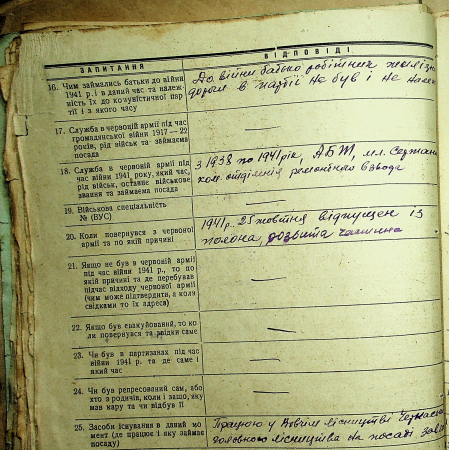 ЗАПИТАННЯ
ВІДПОВІДІ
16. Чим займались батьки до війни
1941 р. і в даний час та належ
ність їх до комуністичної пар
тії і з якого часу
До війни батько робітник залізн
дороги в партії не був і не
17. Служба в червоній армії під час
громадянської війни 1917 — 22
років, рід військ та займаєма
посада
—
18. Служба в червоній армії під
час війни 1941 року, який час,
рід військ, останнє військове
звання та займаєма посада
з 1938 по 1941 рік, мл. Сержант
ком. отділенія ремонтного взвода
19. Військова спеціальність
№ (ВУС)
—
20. Коли повернувся з червоної
армії та по якій причині
1941 р. 25 жовтня відпущен із
полона, розбита частина
21. Якщо не був в червоній армії
під час війни 1941 р., то по
якій причині та де перебував
підчас відходу червоної армії
(чим може підтвердити, а коли
свідками то їх адреса)
—
22. Якщо був евакуйований, то ко
ли повернувся та звідки саме
—
23. Чи був в партизанах під час
війни 1941 р. та де саме і
який час
—
24. Чи був репресований сам, або
хто з родичів, коли і защо, яку
мав кару та чи відбув її
—
25. Засоби існування в даний мо
мент (де працює і яку займає
посаду)
Працюю у лісництві
головного лісництва на посаді